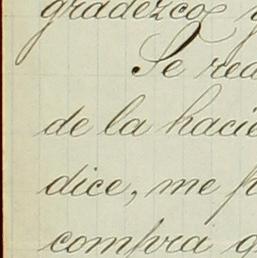 gradezco y
Se rea
de la hacie
dice, me p
compra q